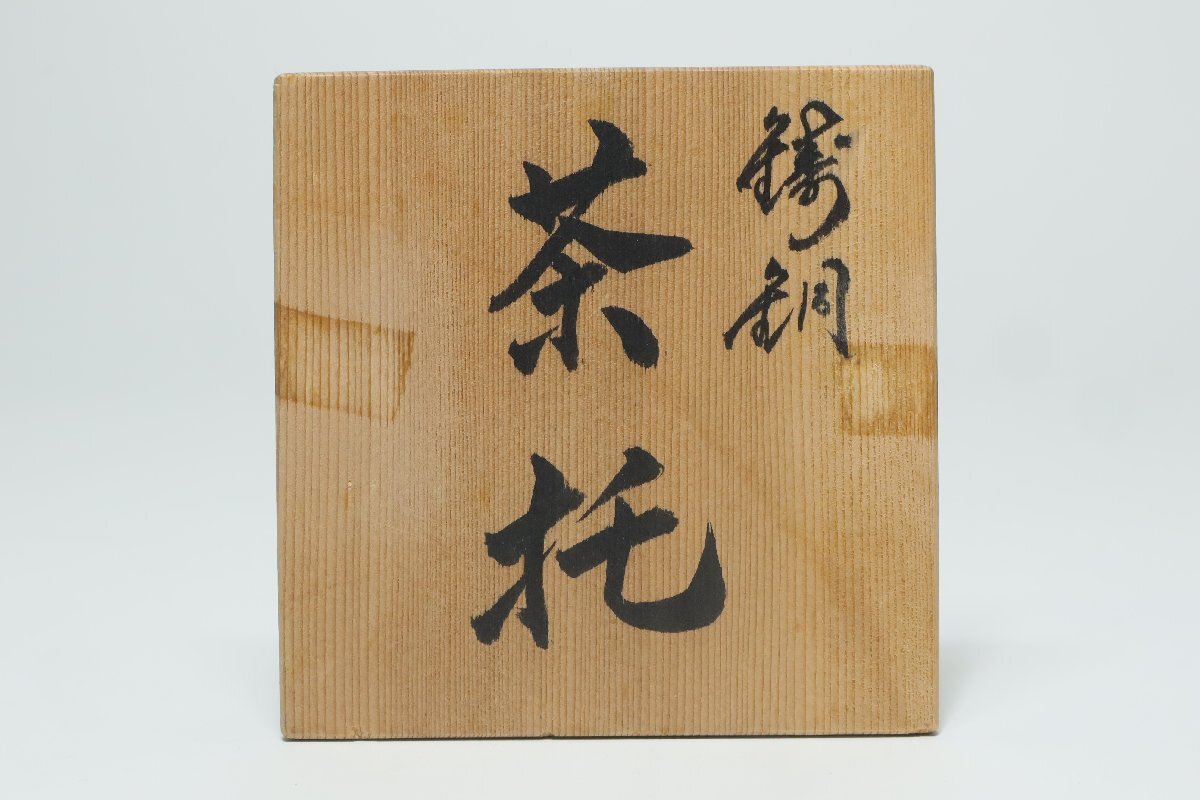 鋳銅
茶托